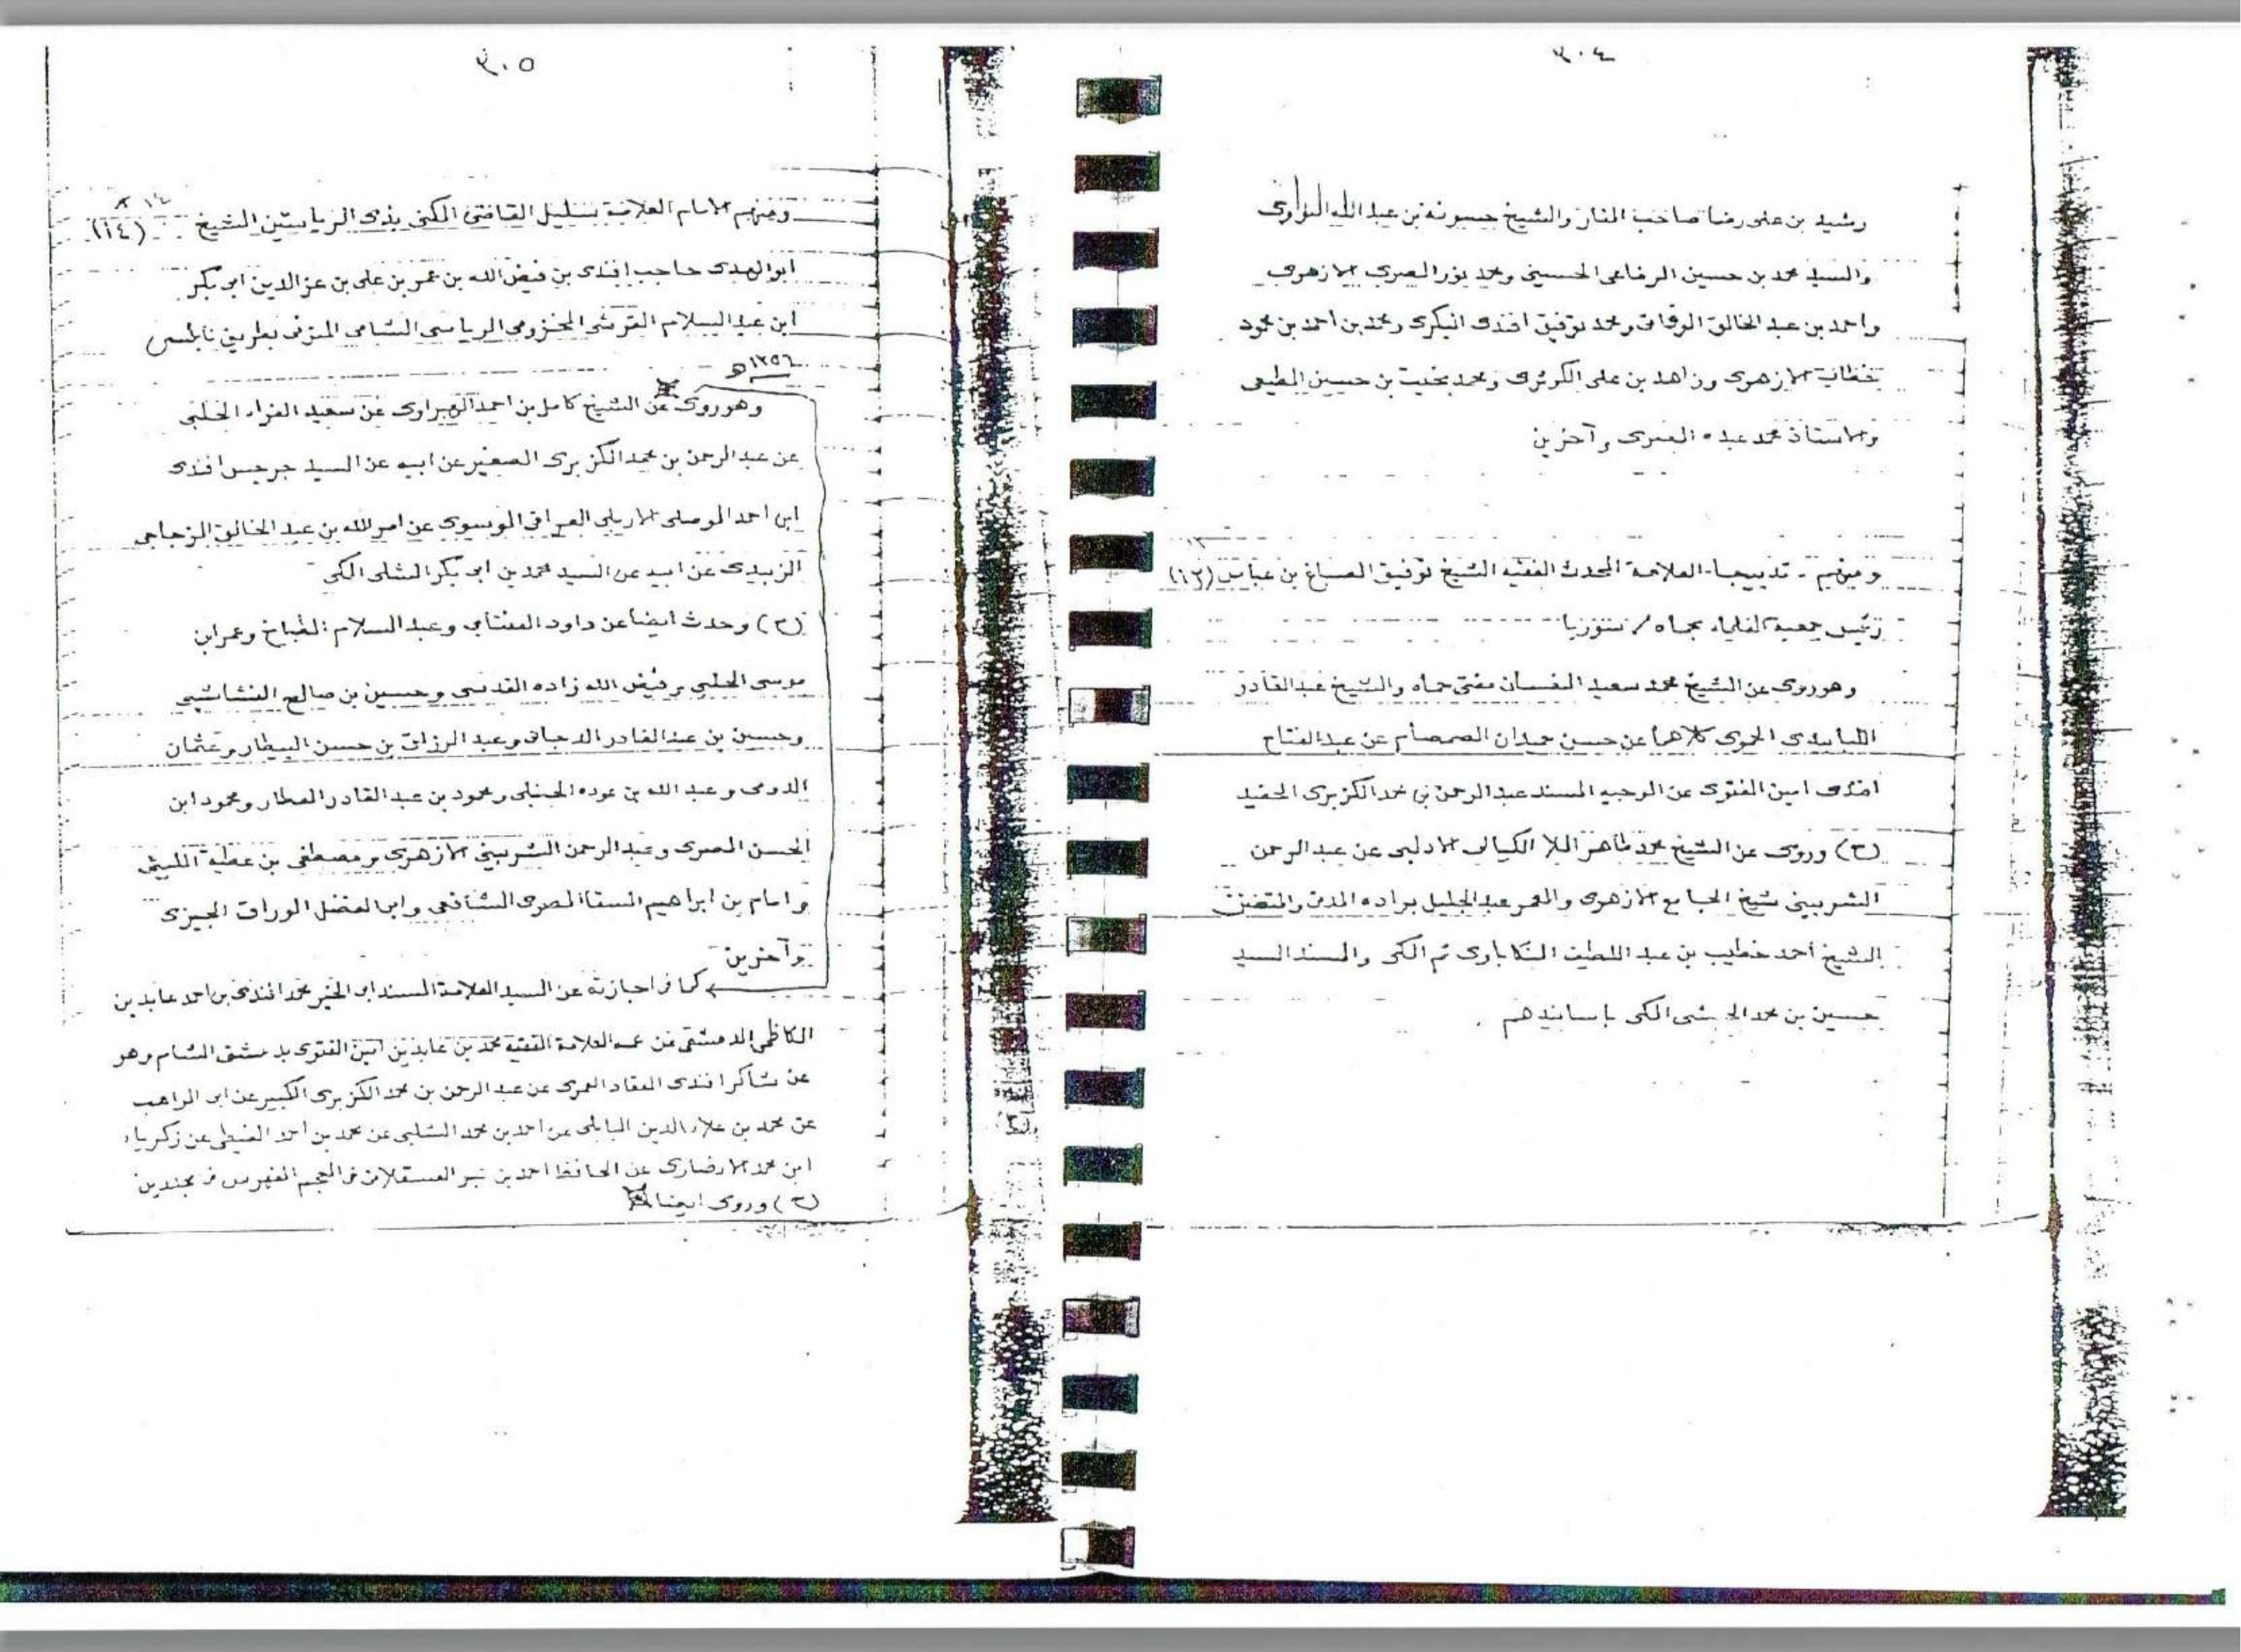 ٣٠٤
رشيد بن على رضا صاحب المنار والشيخ حسونه بن عبد الله النواوى
والسيد محمد بن حسين الرفاعى الحسينى ومحمد نور المصرى الازهرى
واحمد بن عبد الخالق الوفائى ومحمد توفيق افندى البكرى ومحمد بن احمد بن محمود
خطاب الازهرى وزاهد بن على الكوثرى ومحمد بخيت بن حسين المطيعى
والاستاذ محمد عبده المصرى وآخرين
ومنهم - تدبيجا - العلامة المحدث الفقيه الشيخ توفيق الصباغ بن عباس (١٣)
رئيس جمعية العلماء بحماه / سوريا
وهو روى عن الشيخ محمد سعيد النعسان مفتى حماه والشيخ عبد القادر
اللبابيدى الحموى كلاهما عن حسين حمدان الصمصام عن عبد الفتاح
افندى امين الفتوى عن الوجيه المسند عبد الرحمن بن محمد الكزبرى الحفيد
(ح) وروى عن الشيخ محمد طاهر الملا الكيالى الادلبى عن عبد الرحمن
الشربينى شيخ الجامع الازهرى والمعمر عبد الجليل براده المدنى والمتفنن
الشيخ احمد خطيب بن عبد اللطيف المنكاباوى ثم المكى والمسند السيد
حسين بن محمد الحبشى المكى باسانيدهم .
٣٠٥
ومنهم الامام العلامة سليل القاضى المكنى بذى الرياستين الشيخ (١٤)
ابو الهدى حاجب افندى بن فيض الله بن عمر بن على بن عز الدين ابى بكر
ابن عبد السلام القرشى المخزومى الرياسى الشامى المتوفى بطريق نابلس
١٣٥٦ هـ
وهو روى عن الشيخ كامل بن احمد الهبراوى عن سعيد الفراء الحلبى
عن عبد الرحمن بن محمد الكزبرى الصغير عن ابيه عن السيد جرجيس افندى
ابن احمد الموصلى الاربلى العراقى الموسوى عن امر الله بن عبد الخالق الزجاجى
الزبيدى عن ابيه عن السيد محمد بن ابى بكر الشلى المكى
(ح) وحدث ايضا عن داود العنتابى وعبد السلام الطباخ وعمر ابن
موسى الحلبى وفيض الله زاده القدسى وحسين بن صالح النشاشيبى
وحسين بن عبد القادر الدجانى وعبد الرزاق بن حسن البيطار وعثمان
الدومى وعبد الله بن عوده الحنبلى ومحمود بن عبد القادر العطار ومحمود ابن
الحسن المصرى وعبد الرحمن الشربينى الازهرى ومصطفى بن عطية الليثى
وامام بن ابراهيم السقا المصرى الشافعى وابى الفضل الوراق الجيزى
وآخرين
كما فى اجازته عن السيد العلامة المسند ابى الخير محمد افندى بن احمد عابدين
الكاظمى الدمشقى عن عمه العلامة الفقيه محمد بن عابدين امين الفتوى بدمشق الشام وهو
عن شاكر افندى العقاد العمرى عن عبد الرحمن بن محمد الكزبرى الكبير عن ابى المواهب
عن محمد بن علاء الدين البابلى عن احمد بن محمد الشلبى عن محمد بن احمد الغيطى عن زكرياء
ابن محمد الانصارى عن الحافظ احمد بن حجر العسقلانى فى المعجم الفهرس فى مجلدين
(ح) وروى ايضا